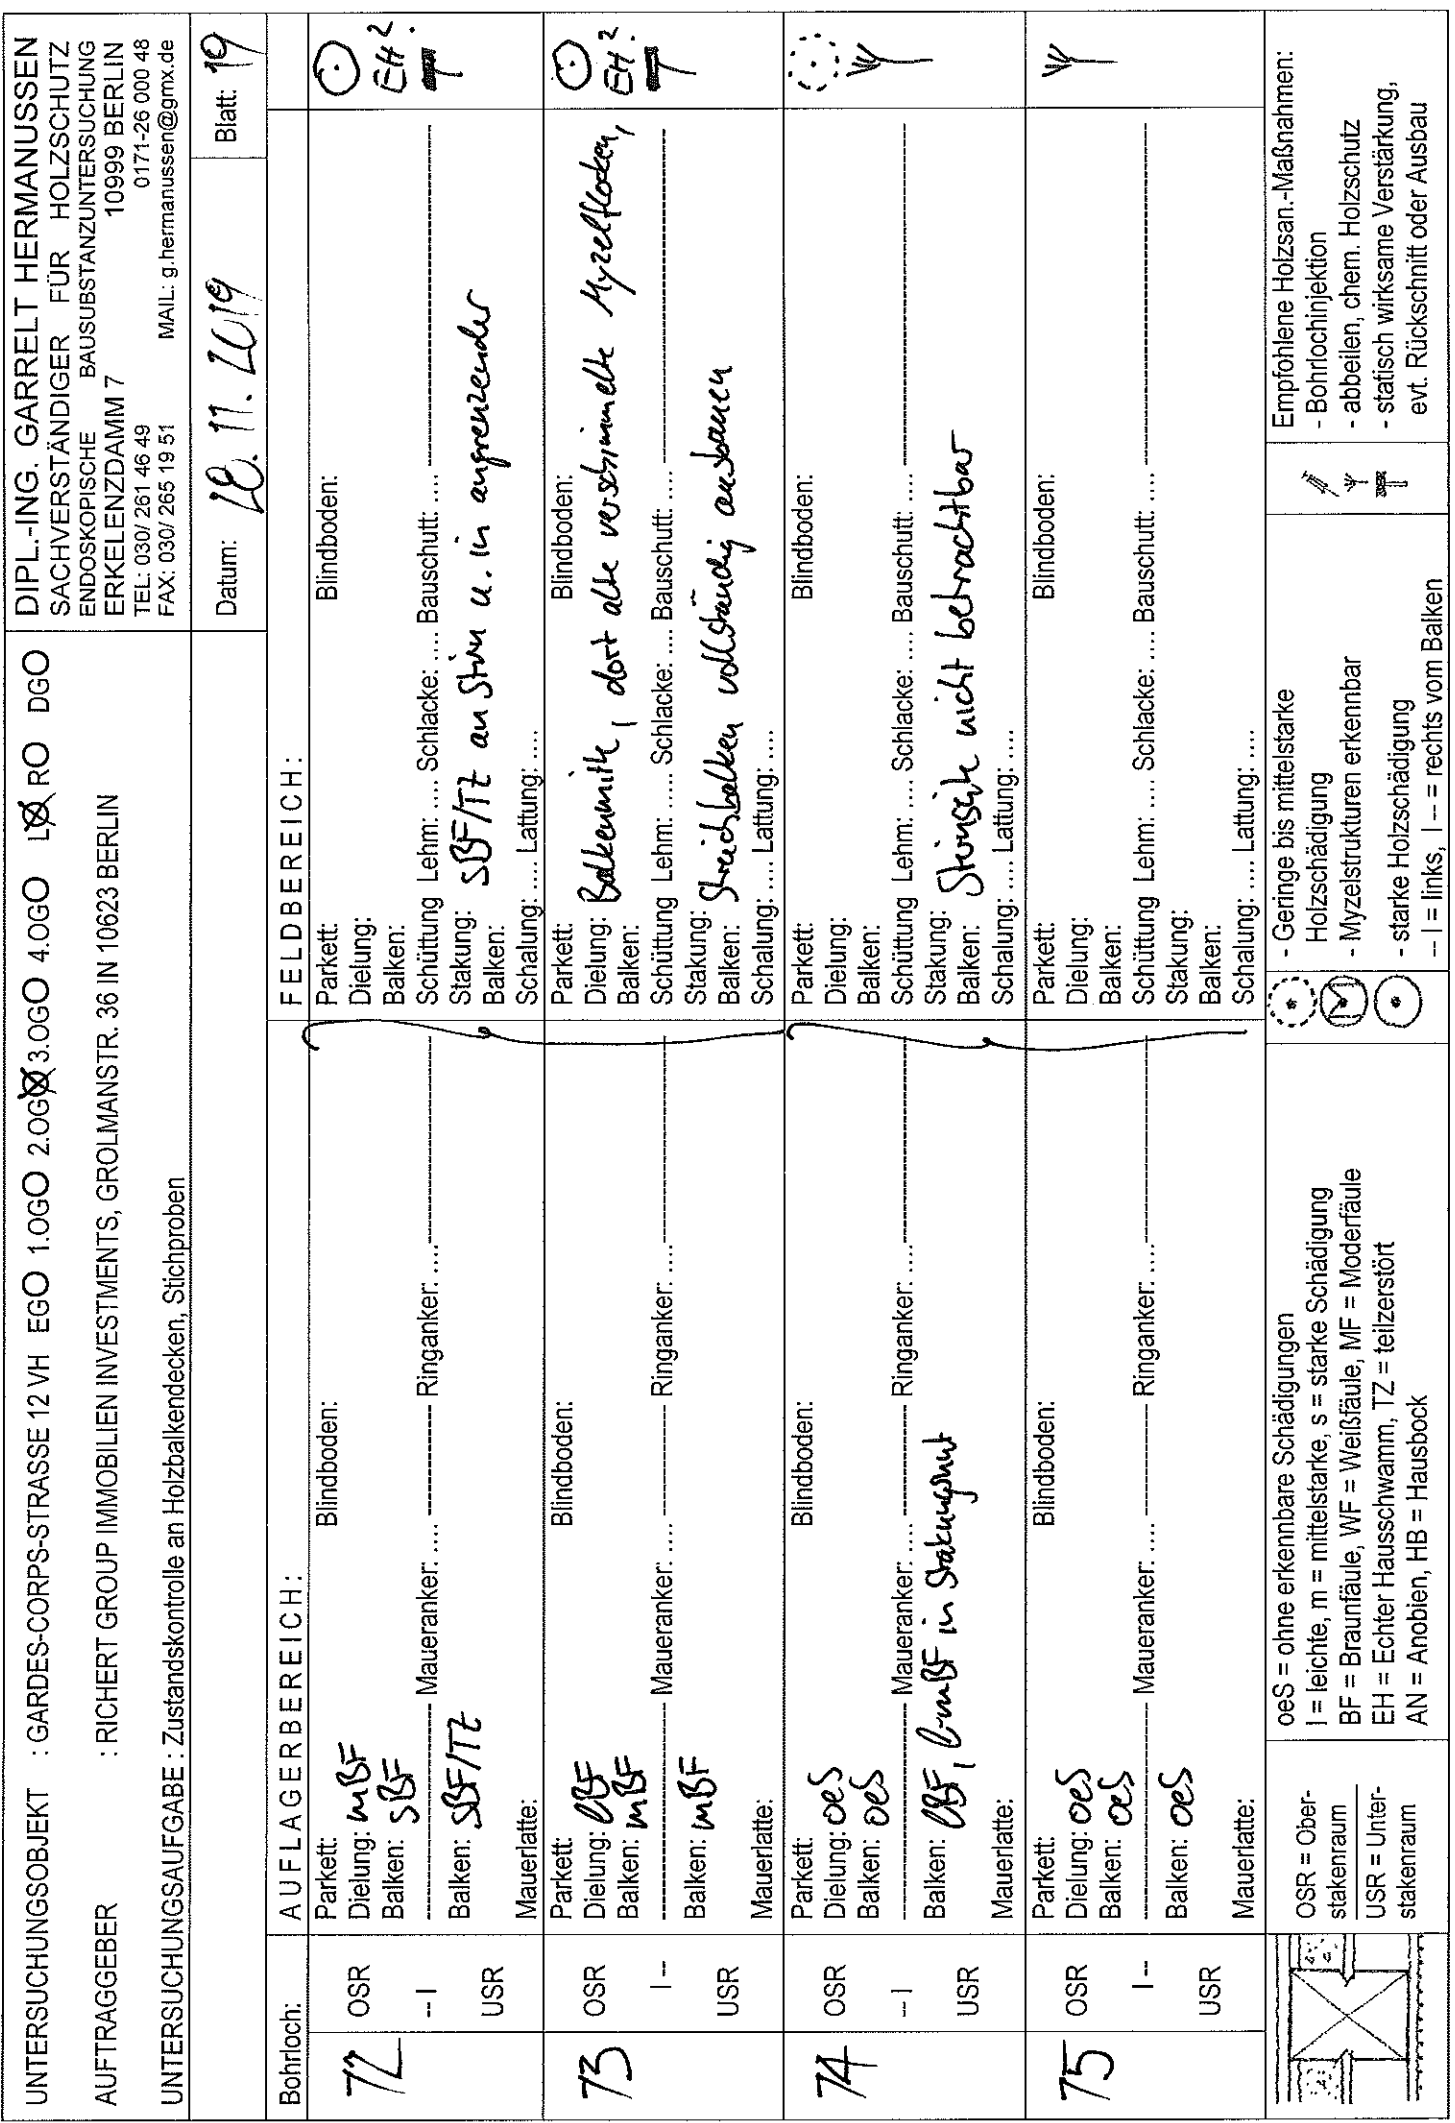 UNTERSUCHUNGSOBJEKT : GARDES-CORPS-STRASSE 12 VH EGO 1.OGO 2.OGO 3.OGO 4.OGO LO RO DGO
AUFTRAGGEBER : RICHERT GROUP IMMOBILIEN INVESTMENTS, GROLMANSTR. 36 IN 10623 BERLIN
UNTERSUCHUNGSAUFGABE : Zustandskontrolle an Holzbalkendecken, Stichproben
DIPL.-ING. GARRELT HERMANUSSEN
SACHVERSTÄNDIGER FÜR HOLZSCHUTZ
ENDOSKOPISCHE BAUSUBSTANZUNTERSUCHUNG
ERKELENZDAMM 7 10999 BERLIN
TEL: 030/ 261 46 49 0171-26 000 48
FAX: 030/ 265 19 51 MAIL: g.hermanussen@gmx.de
Datum: 28.11.2019 Blatt: 19
Bohrloch: AUFLAGERBEREICH: FELDBEREICH:
72
OSR
-- I
USR
Parkett: Blindboden:
Dielung: mBF
Balken: sBF
Maueranker: .... Ringanker: ....
Balken: sBF/TZ
Mauerlatte:
Parkett: Blindboden:
Dielung:
Balken:
Schüttung Lehm: .... Schlacke: .... Bauschutt: ....
Stakung: sBF/TZ an Stirn u. in angrenzender
Balken:
Schalung: .... Lattung: ....
EH?
73
OSR
I --
USR
Parkett: Blindboden:
Dielung: lBF
Balken: mBF
Maueranker: .... Ringanker: ....
Balken: mBF
Mauerlatte:
Parkett: Blindboden:
Dielung: Balkenmitte, dort alte verschimmelte Myzelflocken,
Balken:
Schüttung Lehm: .... Schlacke: .... Bauschutt: ....
Stakung: Streichbalken vollständig ausbauen
Balken:
Schalung: .... Lattung: ....
EH?
74
OSR
-- I
USR
Parkett: Blindboden:
Dielung: oeS
Balken: oeS
Maueranker: .... Ringanker: ....
Balken: lBF, l-mBF in Stakungsnut
Mauerlatte:
Parkett: Blindboden:
Dielung:
Balken:
Schüttung Lehm: .... Schlacke: .... Bauschutt: ....
Stakung: Stirnseite nicht betrachtbar
Balken:
Schalung: .... Lattung: ....
75
OSR
I --
USR
Parkett: Blindboden:
Dielung: oeS
Balken: oeS
Maueranker: .... Ringanker: ....
Balken: oeS
Mauerlatte:
Parkett: Blindboden:
Dielung:
Balken:
Schüttung Lehm: .... Schlacke: .... Bauschutt: ....
Stakung:
Balken:
Schalung: .... Lattung: ....
OSR = Ober-
stakenraum
USR = Unter-
stakenraum
oeS = ohne erkennbare Schädigungen
l = leichte, m = mittelstarke, s = starke Schädigung
BF = Braunfäule, WF = Weißfäule, MF = Moderfäule
EH = Echter Hausschwamm, TZ = teilzerstört
AN = Anobien, HB = Hausbock
- Geringe bis mittelstarke
Holzschädigung
- Myzelstrukturen erkennbar
- starke Holzschädigung
-- I = links, I -- = rechts vom Balken
Empfohlene Holzsan.-Maßnahmen:
- Bohrlochinjektion
- abbeilen, chem. Holzschutz
- statisch wirksame Verstärkung,
evt. Rückschnitt oder Ausbau